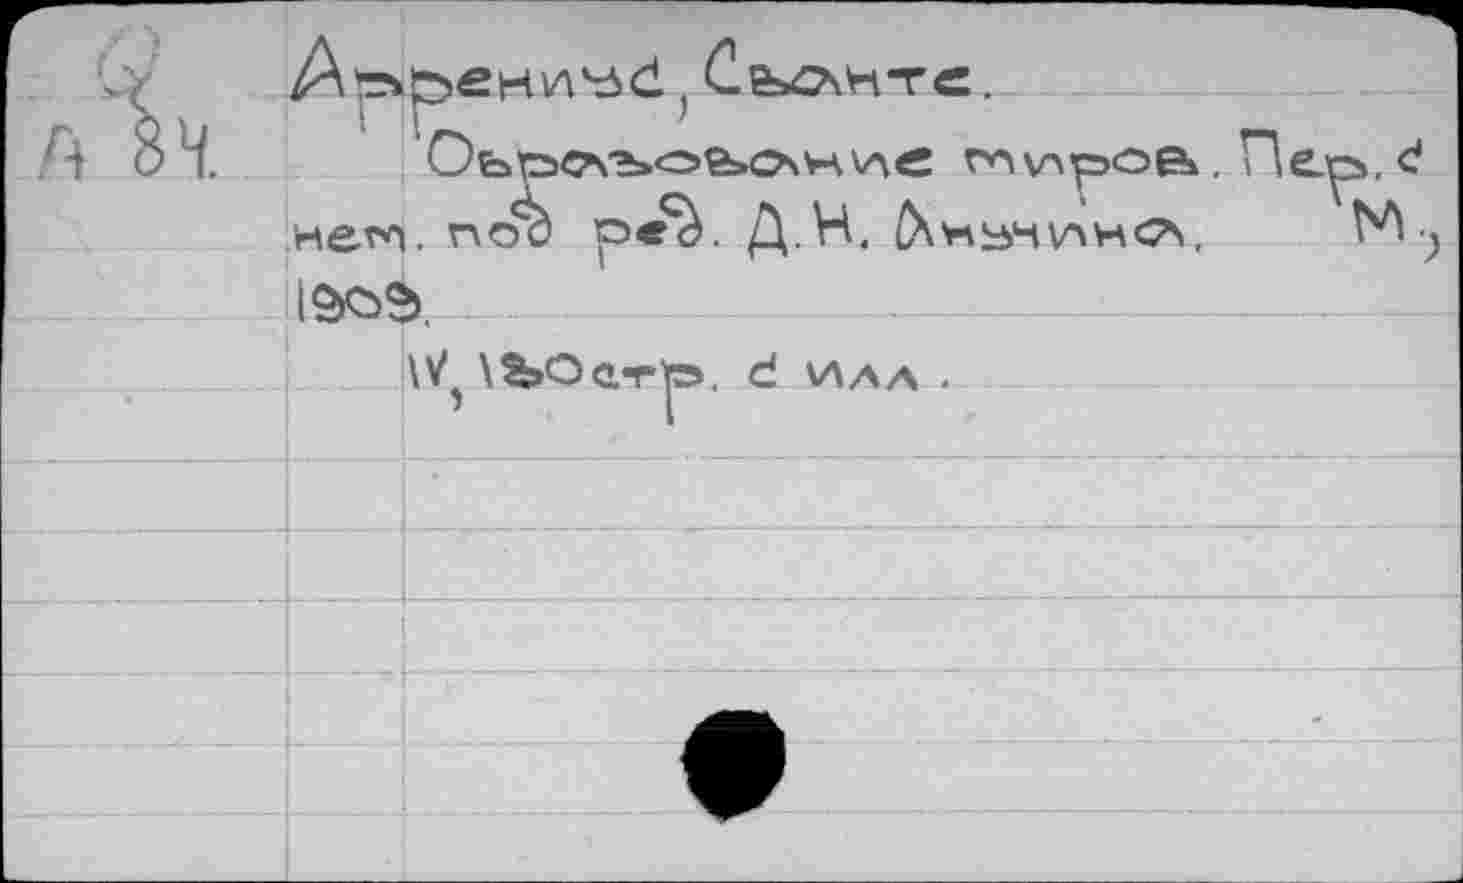 A 84.
Аррениус, Сванте.
Образование миров. Пер. с
нем. под ред. Д.Н. Анучина. М.,
1909.
IV, 180 стр. с илл.